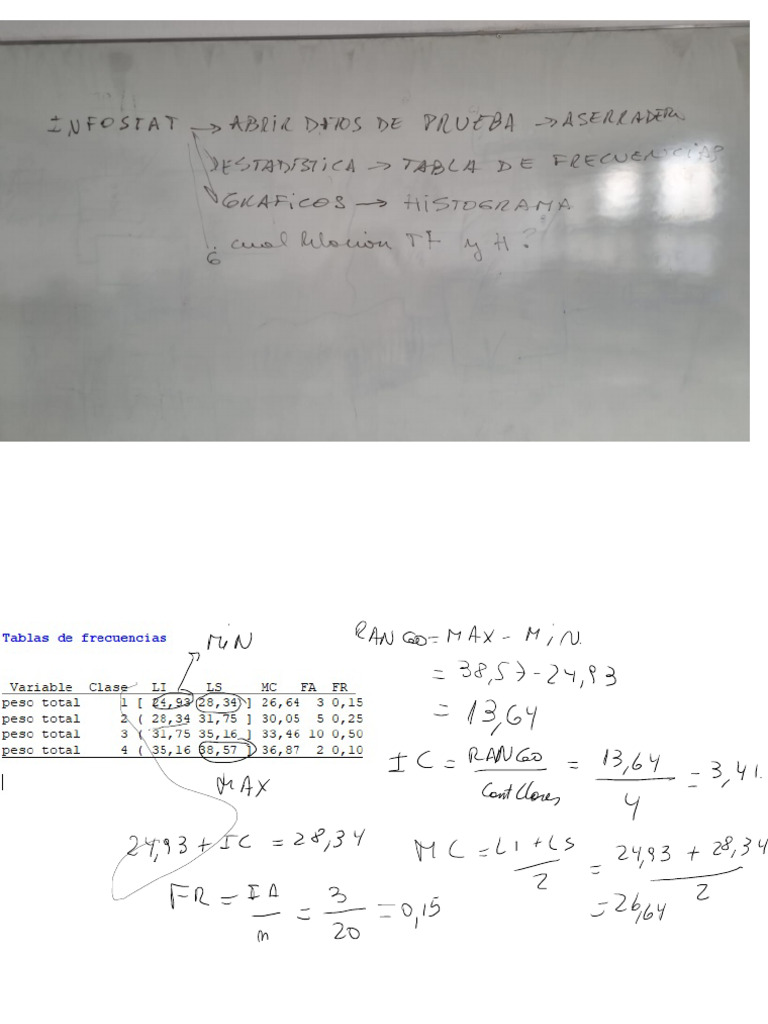 INFOSTAT → ABRIR DATOS DE PRUEBA → ASERRADERO
ESTADÍSTICA → TABLA DE FRECUENCIAS
GRAFICOS → HISTOGRAMA
cual relacion TF y H?
Tablas de frecuencias
MIN
Variable Clase LI LS MC FA FR
peso total 1 [ 24,93 28,34 ] 26,64 3 0,15
peso total 2 ( 28,34 31,75 ] 30,05 5 0,25
peso total 3 ( 31,75 35,16 ] 33,46 10 0,50
peso total 4 ( 35,16 38,57 ] 36,87 2 0,10
MAX
24,93 + IC = 28,34
FR = IA / n = 3 / 20 = 0,15
RANGO = MAX - MIN.
= 38,57 - 24,93
= 13,64
IC = RANGO / Cant Clases = 13,64 / 4 = 3,41.
MC = LI + LS / 2 = 24,93 + 28,34 / 2
= 26,64